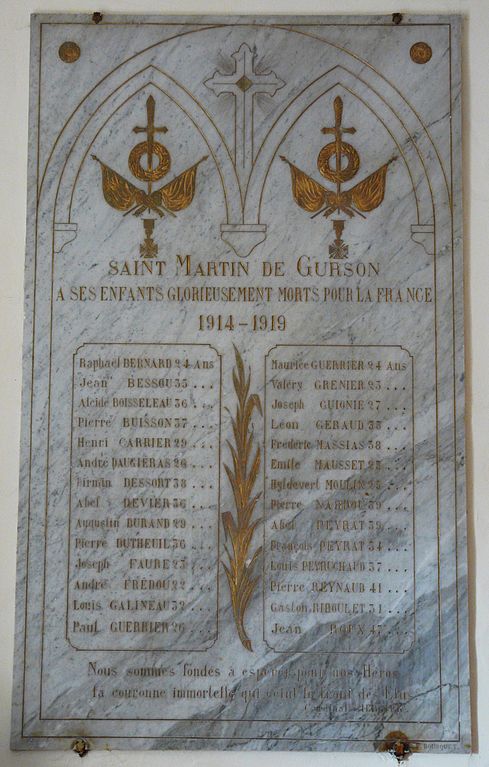 SAINT MARTIN DE GURSON
A SES ENFANTS GLORIEUSEMENT MORTS POUR LA FRANCE
1914-1919
Raphaël BERNARD 24 Ans
Jean BESSOU 35 ...
Alcide BOISSELEAU 36 ...
Pierre BUISSON 37 ...
Henri CARRIER 29 ...
André DAUGIERAS 26 ...
Firmin DESSORT 38 ...
Abel DEVIER 36 ...
Augustin DURAND 29 ...
Pierre DUTHEUIL 36 ...
Joseph FAURE 23 ...
André FREDOU 22 ...
Louis GALINEAU 32 ...
Paul GUERRIER 26 ...
Maurice GUERRIER 24 Ans
Valéry GRENIER 23 ...
Joseph GUIONIE 27 ...
Léon GERAUD 33 ...
Frédéric MASSIAS 38 ...
Emile MAUSSET 23 ...
Hyldevert MOULIN 23 ...
Pierre 39 ...
Abel PEYRAT 39 ...
François PEYRAT 34 ...
Louis PEYRUCHAUD 37 ...
Pierre REYNAUD 41 ...
Gaston RIBOULET 31 ...
Jean ROUX 47 ...
Nous sommes fondés à espérer pour nos Héros
la couronne immortelle qui ceint le front des Elus
Cardinal